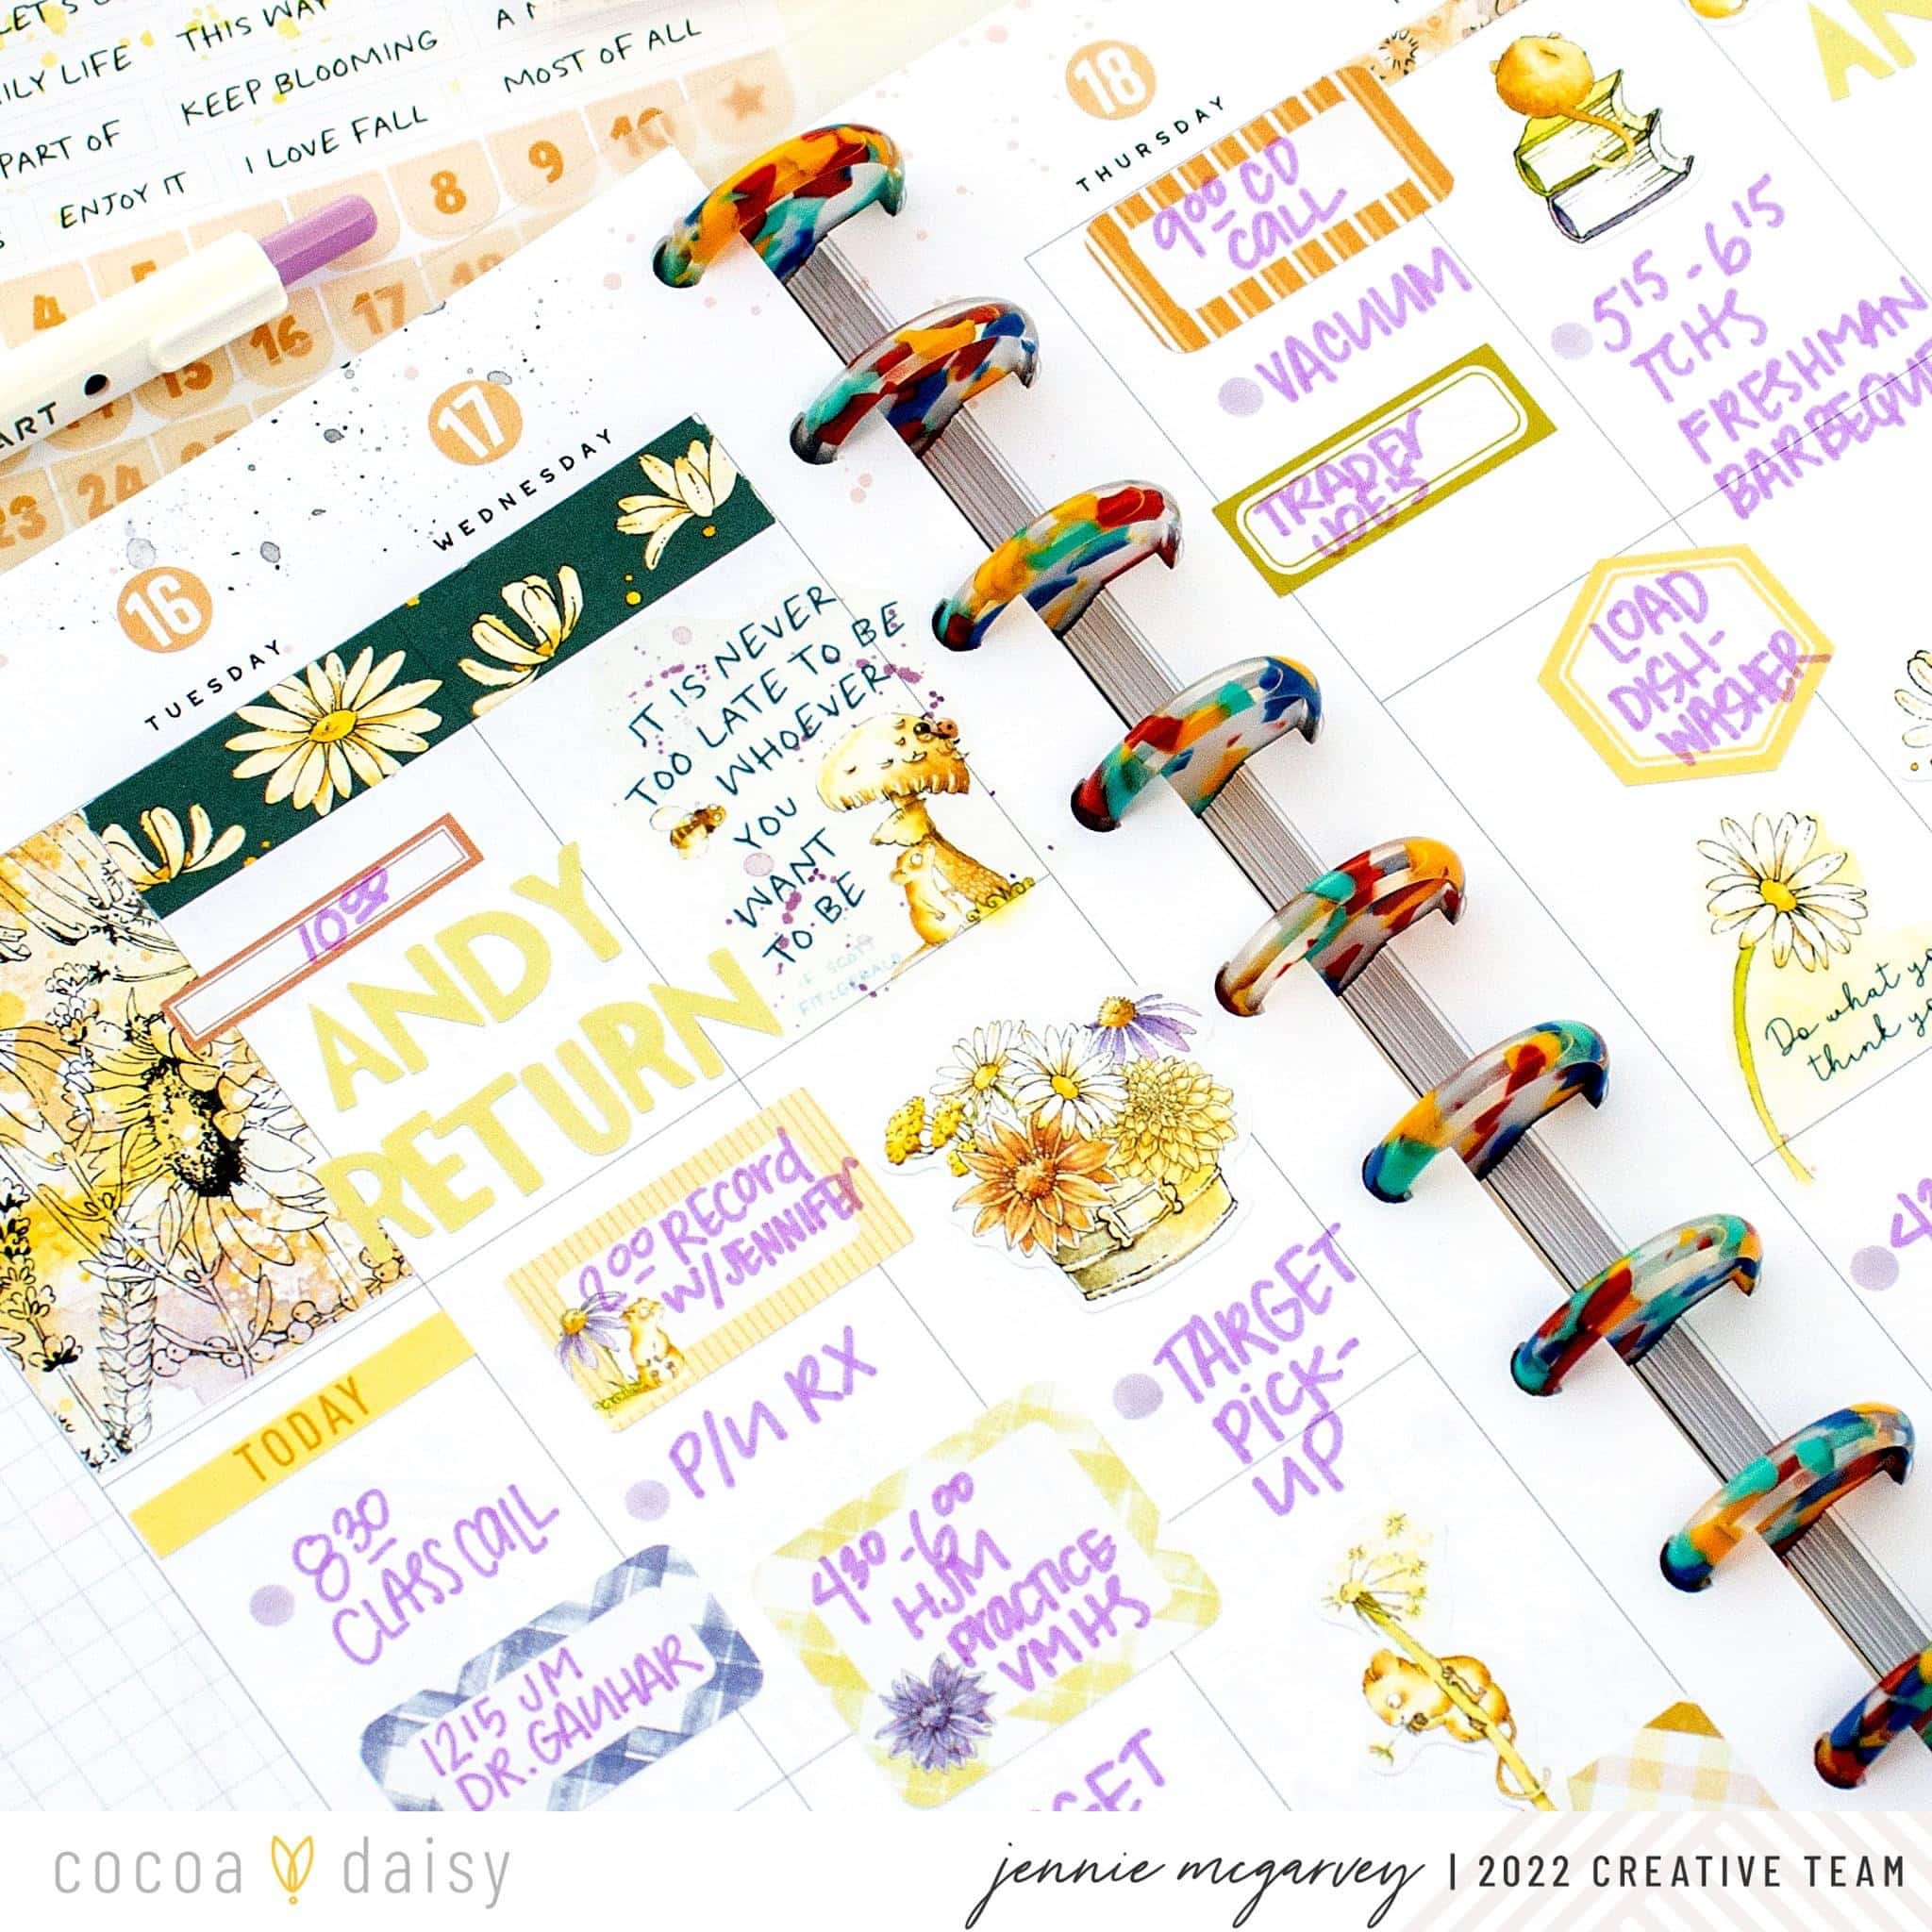 ILY LIFE
THIS WAY
PART OF
KEEP BLOOMING
MOST OF ALL
ENJOY IT
I LOVE FALL
8
9
10
4
5
15
16
17
23
24
ART
16
TUESDAY
17
WEDNESDAY
10
ANDY
RETURN
IT IS NEVER
TOO LATE TO BE
WHOEVER
YOU
WANT
TO BE
F. SCOTT
FITZGERALD
TODAY
8 30
CLASS CALL
1215 JM
DR. GAUHAR
00 RECORD
W/JENNIFER
P/U RX
430-600
HJM
PRACTICE
VMHS
TARGET
PICK-
UP
GET
18
THURSDAY
9 00 CD
CALL
VACUUM
TRADEY
JOE'S
515-615
TCHS
FRESHMAN
BARBEQUE
LOAD
DISH-
WASHER
Do what yo
think yo
cocoa daisy
jennie mcgarvey | 2022 CREATIVE TEAM